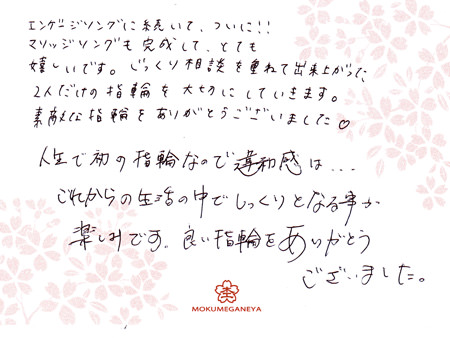 エンゲージリングに続いて、ついに!!
マリッジリングも完成して、とても
嬉しいです。じっくり相談を重ねて出来上がった、
2人だけの指輪を大切にしていきます。
素敵な指輪をありがとうございました♡
人生で初の指輪なので違和感は...
これからの生活の中でしっくりとなる事が
楽しみです。良い指輪をありがとう
ございました。
MOKUMEGANEYA